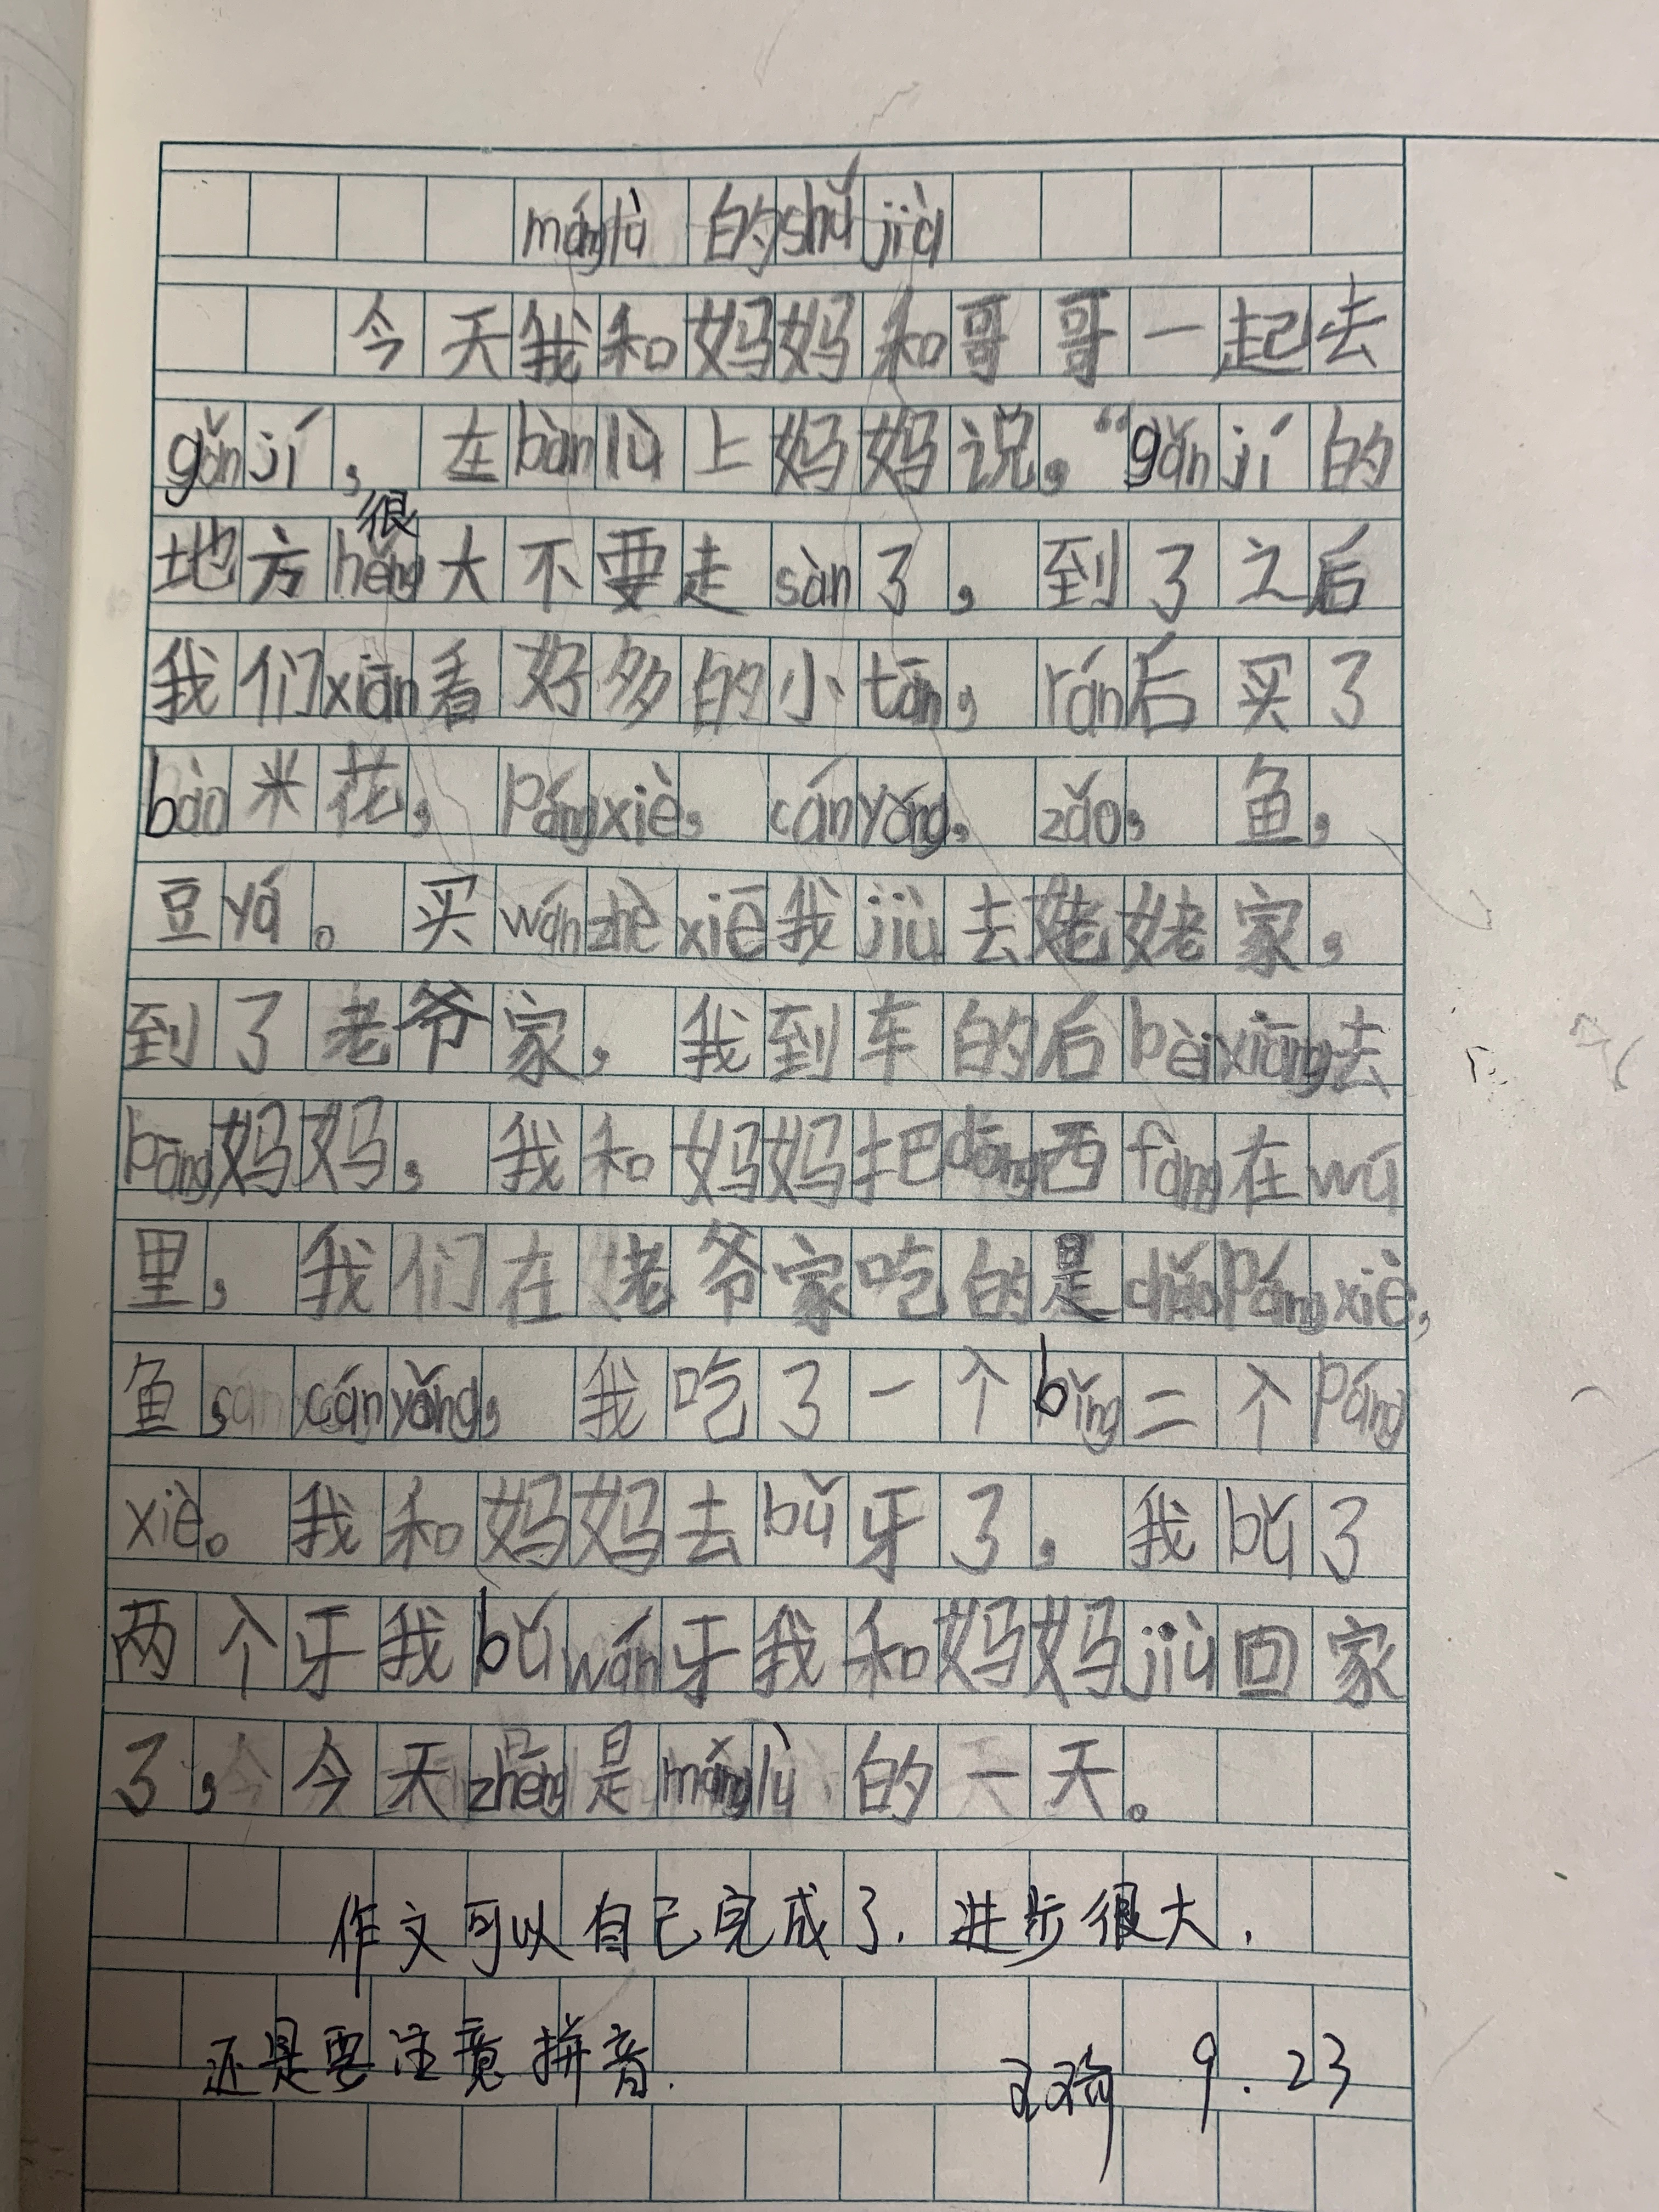 mánglù 的shǔjià
今天我和妈妈和哥哥一起去
gǎnjí，在bànlù上妈妈说。“gǎnjí的
很
地方hěng大不要走sàn了，到了之后
我们xiān看好多的小tān，rán后买了
bào米花，pángxiè，cányǒng，zǎo，鱼，
豆yá。买wánzhèxiē我jiù去姥姥家，
到了老爷家，我到车的后bèixiāng去
bāng妈妈，我和妈妈把dōng西fàng在wú
里，我们在姥爷家吃的是chǎopángxiè，
鱼，cányǒng，我吃了一个bǐng二个páng
xiè。我和妈妈去bǔ牙了，我bǔ了
两个牙我bǔwán牙我和妈妈jiù回家
了，今天zhēng是mánglù的一天。
作文可以自己完成了.进步很大.
还是要注意拼音.
9.23